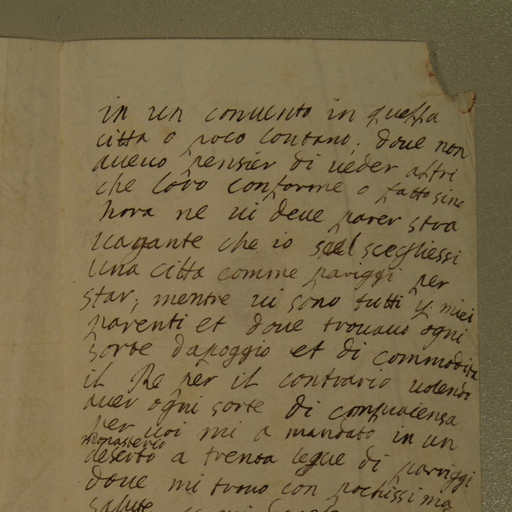 in un conuento in questa
citta o poco lontano, doue non
aueuo pensier di ueder altri
che loro conforme o fatto sino
hora ne ui deue parer stra
uagante che io scegliessi
una citta comme pariggi per
star, mentre ui sono tutti y miei
parenti et doue trouauo ogni
sorte dapoggio et di commodita
il Re per il contrario uolendo
auer ogni sorte di compiacensa
per uoi mi a mandato in un
monasterio
deserto a trenta legue di pariggi
doue mi trouo con pochissima
salute